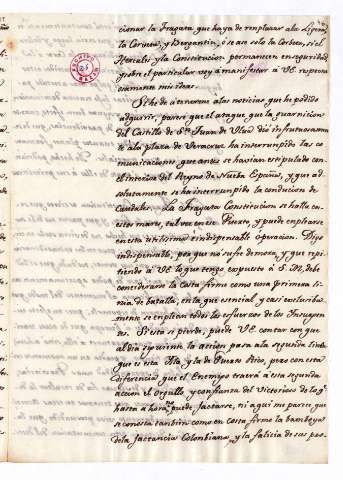 cionar la Fragata que haya de remplazar a la Ligera,
la Corveta, y Bergantin, ó sea an solo la Corbeta, si el
Hercules y la Constitucion permanecen en seguridad
y sobre el particular voy á manifestar á VE. respetuo
samente mis ideas.
Si he de atenerme a las noticias que he podido
adquirir, parece que el ataque que la guarnicion
del Castillo de Sn. Juan de Ulua dió infructuosamen
te a la plaza de Veracruz ha interrumpido las co
municaciones que antes se havian estipulado con
el interior del Reyno de Nueba España, y que ad
solutamente se ha interrumpido la conducion de
Caudales. La Fragata Constitucion se halla en
estos mares, tal vez en este Puerto, y puede emplearse
en esta utilisima é indispensable operacion. Digo
indispensable, porque no sufre demora, y que repi
tiendo á VE. lo que tengo expuesto á S.M., debe
considerarse la Costa firme como una primera li
nea de batalla, en la que esencial y casi exclusiba
mente se emplean todos los esfuerzos de los Insurgen
tes. Si esta se pierde, puede VE. contar con que
al dia siguiente la accion pasa ala segunda linea
que es esta Isla y la de Puerto Rico, pero con esta
diferencia que el Enemigo traerá á esta segunda
accion el orgullo y confianza del Victorioso de los qe.
hasta ahora no puede jactarse, ni aqui me parece que
se conosca tambien como en Costa firme la
de la jactancia Colombiana, y la falicia de sus pos.